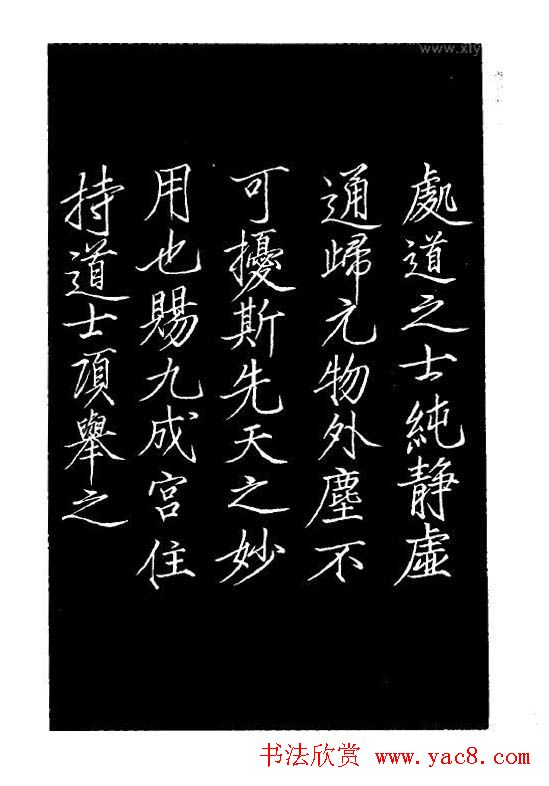 www.xly
處道之士純靜虛
通歸元物外塵不
可擾斯先天之妙
用也賜九成宮住
持道士項舉之
书法欣赏 www.yac8.com